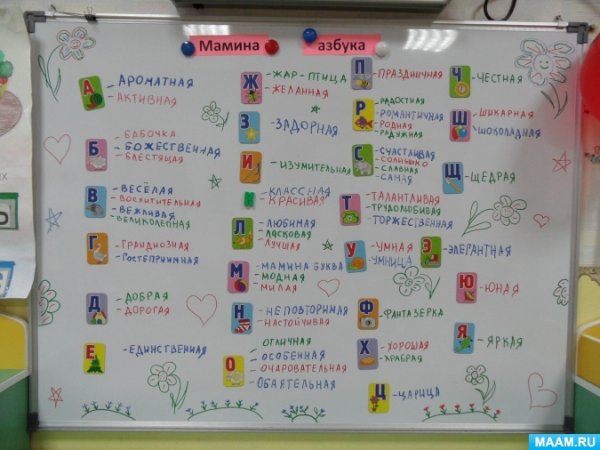 Мамина азбука
А - АРОМАТНАЯ
- АКТИВНАЯ
Б - БАБОЧКА
- БОЖЕСТВЕННАЯ
- БЛЕСТЯЩАЯ
В - ВЕСЁЛАЯ
- ВОСПИТАТЕЛЬНАЯ
- ВЕЖЛИВАЯ
- ВЕЛИКОЛЕПНАЯ
Г - ГРАНДИОЗНАЯ
- ГОСТЕПРИИМНАЯ
Д - ДОБРАЯ
- ДОРОГАЯ
Е - ЕДИНСТВЕННАЯ
Ж - ЖАР-ПТИЦА
- ЖЕЛАННАЯ
З - ЗАДОРНАЯ
И - ИЗУМИТЕЛЬНАЯ
К - КЛАССНАЯ
- КРАСИВАЯ
Л - ЛЮБИМАЯ
- ЛАСКОВАЯ
- ЛУЧШАЯ
М - МАМИНА БУКВА
- МОДНАЯ
- МИЛАЯ
Н - НЕПОВТОРИМАЯ
- НАСТОЙЧИВАЯ
О - ОТЛИЧНАЯ
- ОСОБЕННАЯ
- ОЧАРОВАТЕЛЬНАЯ
- ОБАЯТЕЛЬНАЯ
П - ПРАЗДНИЧНАЯ
Р - РАДОСТНАЯ
- РОМАНТИЧНАЯ
- РОДНАЯ
- РАДУЖНАЯ
С - СЧАСТЛИВАЯ
- СОЛНЫШКО
- СЛАВНАЯ
- САМАЯ
Т - ТАЛАНТЛИВАЯ
- ТРУДОЛЮБИВАЯ
- ТОРЖЕСТВЕННАЯ
У - УМНАЯ
- УМНИЦА
Ф - ФАНТАЗЁРКА
Х - ХОРОШАЯ
- ХРАБРАЯ
Ц - ЦАРИЦА
Ч - ЧЕСТНАЯ
Ш - ШИКАРНАЯ
- ШОКОЛАДНАЯ
Щ - ЩЕДРАЯ
Э - ЭЛЕГАНТНАЯ
Ю - ЮНАЯ
Я - ЯРКАЯ
MAAM.RU